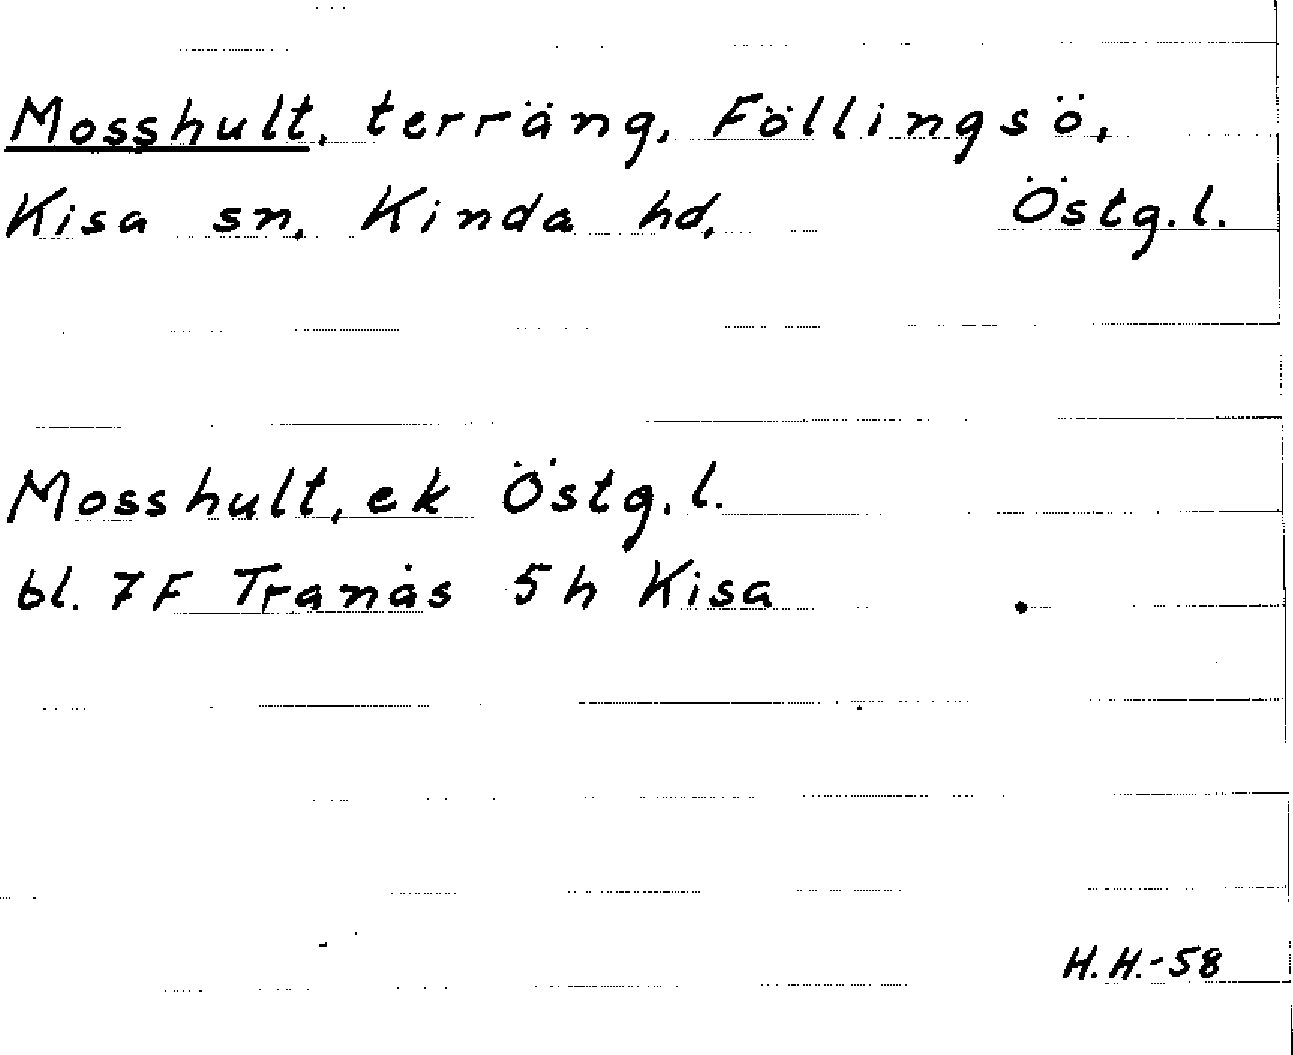 Mosshult, terräng, Föllingsö,
Kisa sn, Kinda hd, Östg.l.
Mosshult, ek Östg.l.
bl. 7F Tranås 5h Kisa
H.H.-58